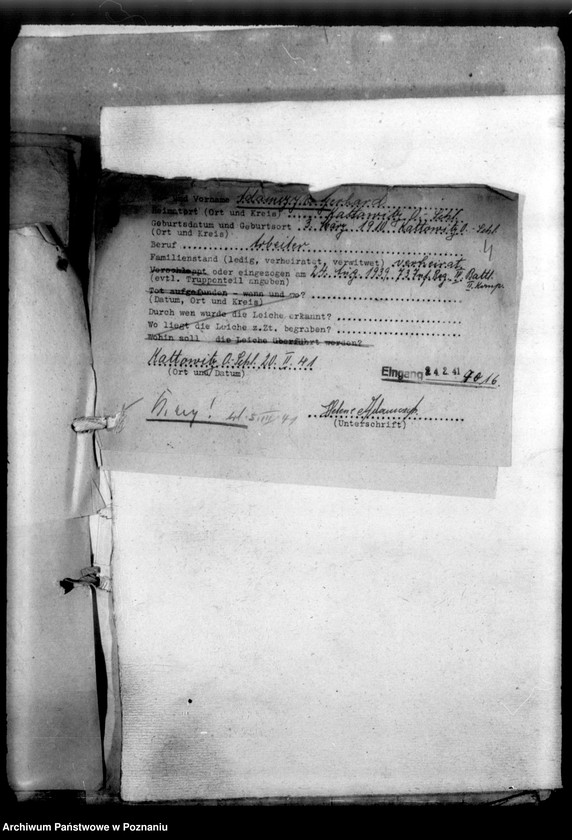 und Vorname Adamczyk Gerhard
Heimatort (Ort und Kreis) Kattowitz O. Schl.
Geburtsdatum und Geburtsort 3. März 1910 Kattowitz O.-Schl.
(Ort und Kreis)
Beruf Arbeiter
4
Familienstand (ledig, verheiratet, verwitwet) verheirat.
Verschleppt oder eingezogen am 24. Aug. 1939. 73 Inf. Reg. II. Batl.
(evtl. Truppenteil angeben) II. Komp.
Tot aufgefunden - wann und wo?
(Datum, Ort und Kreis)
Durch wen wurde die Leiche erkannt?
Wo liegt die Leiche z.Zt. begraben?
Wohin soll die Leiche überführt werden?
Kattowitz O. Schl. 20. II. 41
(Ort und Datum)
Eingang 24 2 41
Helene Adamczyk
(Unterschrift)
Archiwum Państwowe w Poznaniu